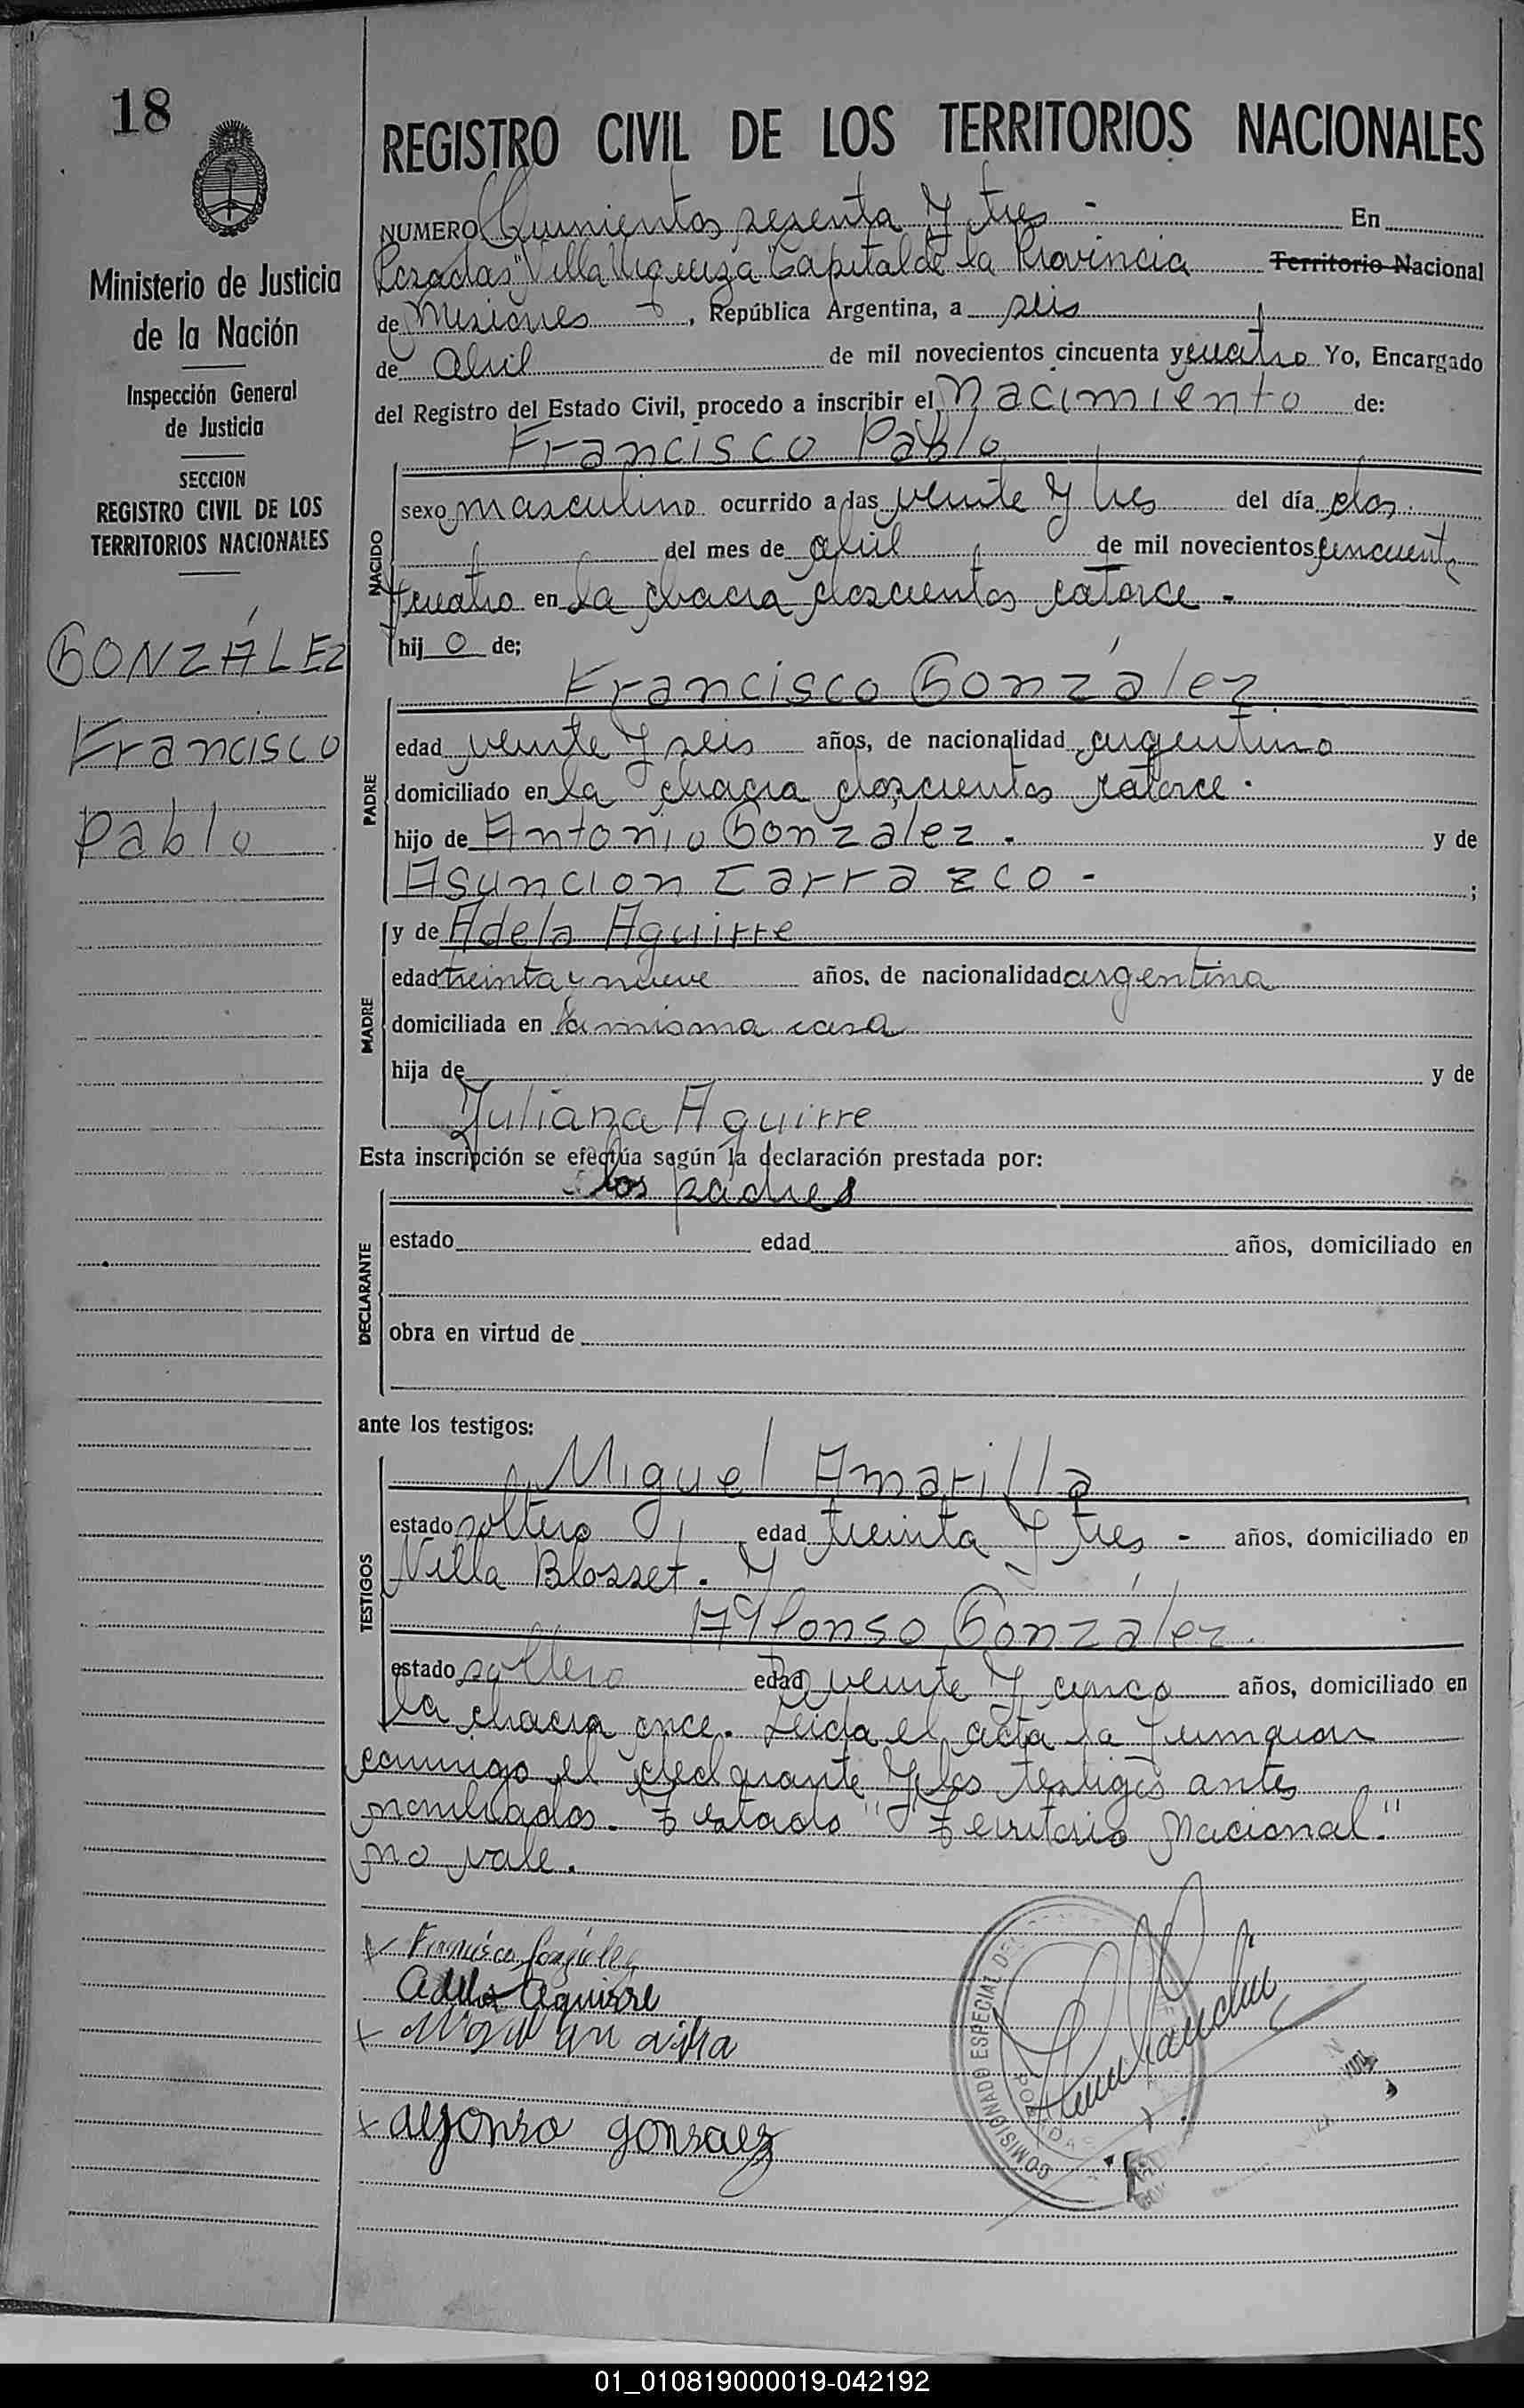 18
Ministerio de Justicia
de la Nación
Inspección General
de Justicia
SECCION
REGISTRO CIVIL DE LOS
TERRITORIOS NACIONALES
GONZÁLEZ
Francisco
Pablo
REGISTRO CIVIL DE LOS TERRITORIOS NACIONALES
NUMERO Quinientos sesenta y tres - En
Posadas "Villa Urquiza" Capital de la Provincia Territorio Nacional
de Misiones, República Argentina, a seis
de abril de mil novecientos cincuenta y cuatro Yo, Encargado
del Registro del Estado Civil, procedo a inscribir el Nacimiento de:
Francisco Pablo
NACIDO
sexo masculino ocurrido a las veinte y tres del día dos
del mes de abril de mil novecientos cincuenta
y cuatro en la chacra doscientos catorce -
hij o de;
Francisco González
PADRE
edad veinte y seis años, de nacionalidad argentino
domiciliado en la chacra doscientos catorce.
hijo de Antonio Gonzalez - y de
Asuncion Carrazco - ;
y de Adela Aguirre
MADRE
edad treinta y nueve años, de nacionalidad argentina
domiciliada en la misma casa
hija de y de
Juliana Aguirre
Esta inscripción se efectúa según la declaración prestada por:
los padres
DECLARANTE
estado edad años, domiciliado en
obra en virtud de
ante los testigos:
Miguel Amarilla
TESTIGOS
estado soltero edad treinta y tres - años, domiciliado en
Villa Blosset. y
Alfonso González.
estado soltero edad veinte y cinco años, domiciliado en
la chacra once. Leida el acta la firman
conmigo el declarante y los testigos antes
nombrados. Testado "Territorio Nacional."
no vale.
Francisco González
Adela Aguirre
alfonso gonsaez
COMISIONADO ESPECIAL DE
POSADAS
01_010819000019-042192